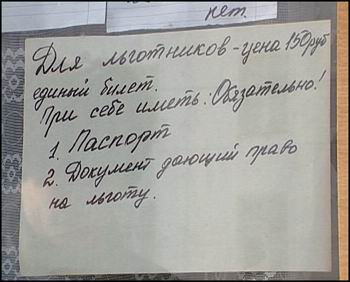 нет.
Для льготников - цена 150 руб
единый билет.
При себе иметь. Обязательно!
1. Паспорт
2. Документ дающий право
на льготу.